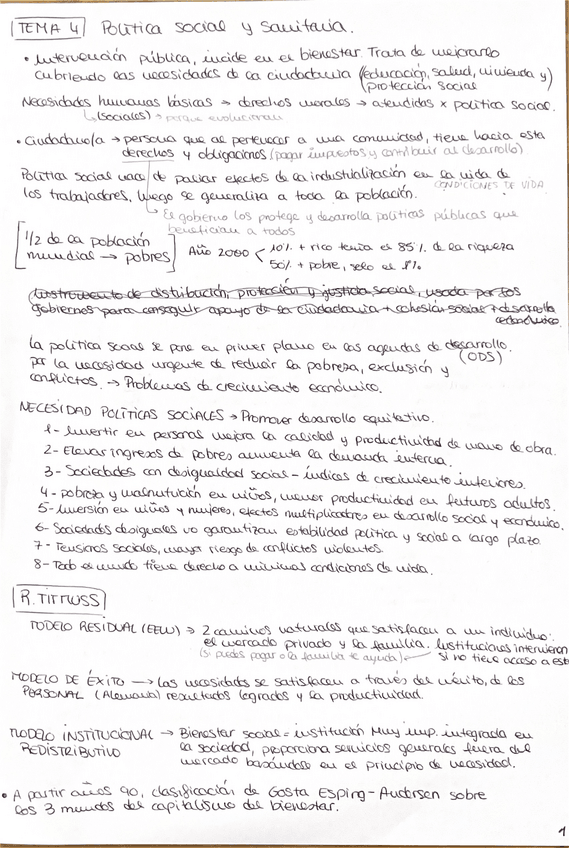 TEMA 4 Política social y sanitaria.
• Intervención pública, incide en el bienestar. Trata de mejorarlo
cubriendo las necesidades de la ciudadanía (educación, salud, vivienda y)
protección social
Necesidades humanas básicas → derechos morales → atendidas x política social.
(sociales) → porque evolucionan
• Ciudadano/a → persona que al pertenecer a una comunidad, tiene hacia esta
derechos y obligaciones (pagar impuestos y contribuir al desarrollo)
Política social nace de paliar efectos de la industrialización en la vida de
CONDICIONES DE VIDA
los trabajadores, luego se generaliza a toda la población.
El gobierno los protege y desarrolla políticas públicas que
benefician a todos
1/2 de la población
mundial → pobres
Año 2000
10% + rico tenía el 85% de la riqueza
50% + pobre, solo el 1%
Instrumento de distribución, protección y justicia social, usada por los
gobiernos para conseguir apoyo de la ciudadanía + cohesión social + desarrollo
económico.
La política social se pone en primer plano en las agendas de desarrollo.
(ODS)
por la necesidad urgente de reducir la pobreza, exclusión y
conflictos. → Problemas de crecimiento económico.
NECESIDAD POLÍTICAS SOCIALES → Promover desarrollo equitativo.
1- Invertir en personas mejora la calidad y productividad de mano de obra.
2- Elevar ingresos de pobres aumenta la demanda interna.
3- Sociedades con desigualdad social - índices de crecimiento inferiores.
4- pobreza y malnutrición en niños, menor productividad en futuros adultos.
5- Inversión en niños y mujeres, efectos multiplicadores en desarrollo social y económico.
6- Sociedades desiguales no garantizan estabilidad política y social a largo plazo.
7- Tensiones sociales, mayor riesgo de conflictos violentos.
8- Todo el mundo tiene derecho a mínimas condiciones de vida.
R. TITMUSS
MODELO RESIDUAL (EEUU) → 2 caminos naturales que satisfacen a un individuo:
el mercado privado y la familia. Instituciones intervienen
(si puedes pagar o la familia te ayuda) si no tiene acceso a est
MODELO DE ÉXITO → Las necesidades se satisfacen a través del mérito, de los
PERSONAL (Alemania) resultados logrados y la productividad.
MODELO INSTITUCIONAL → Bienestar social = institución muy imp. integrada en
REDISTRIBUTIVO la sociedad, proporciona servicios generales fuera del
mercado basándose en el principio de necesidad.
• A partir años 90, clasificación de Gosta Esping-Andersen sobre
los 3 mundos del capitalismo del bienestar.
1